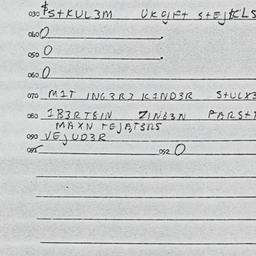 030 $S+KUL3M UKOJFT S+EJ
040 0
050 0
060 0
070 M1T ING3R3 KIND3R S+ULX3
080 IB3RTSIN ZIN63N PARS+T
MAXN TEJAT3RS
090 VEJUD3R
091 092 0